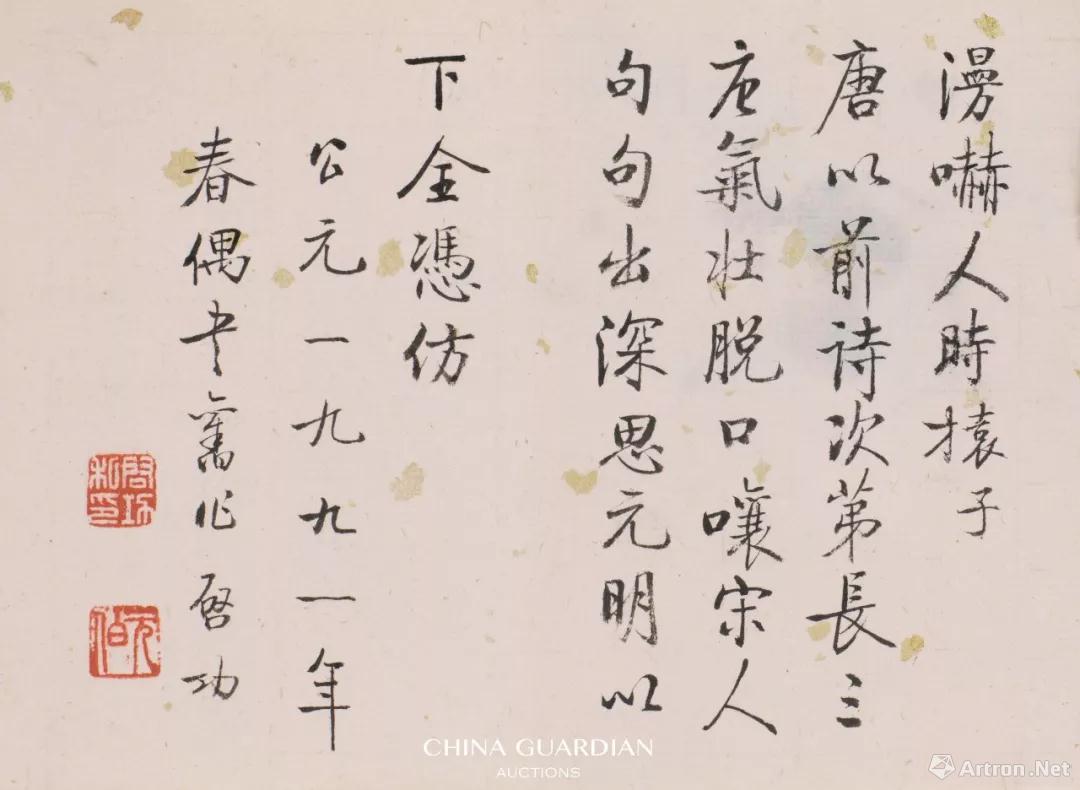 漫嚇人時子
唐以前詩次第長三
唐氣壯脫口嚷宋人
句句出深思元明以
下全憑仿
公元一九九一年
春偶書舊作 啓功
啓功私印
元伯
CHINA GUARDIAN
AUCTIONS
Artron.Net